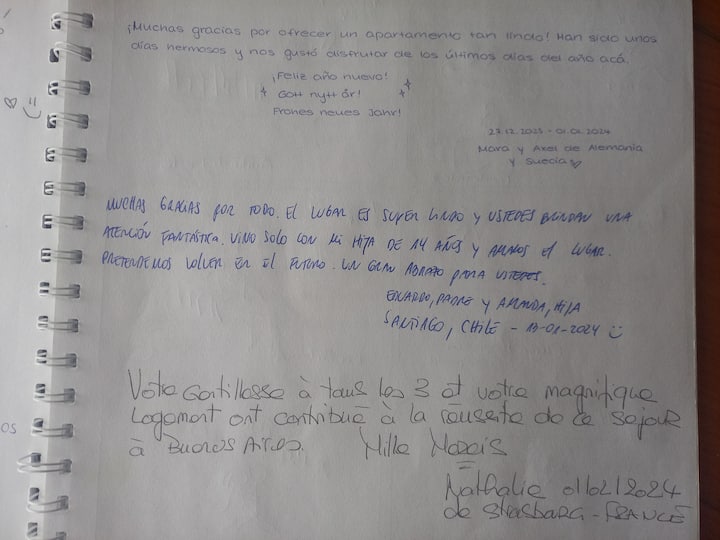 ¡Muchas gracias por ofrecer un apartamento tan lindo! Han sido unos
días hermosos y nos gustó disfrutar de los últimos días del año acá.
¡Feliz año nuevo!
Gott nytt år!
Frohes neues Jahr!
27.12.2023 - 01.01.2024
Mara y Axel de Alemania
y Suecia
MUCHAS GRACIAS POR TODO. EL LUGAR ES SUPER LINDO Y USTEDES BRINDAN UNA
ATENCIÓN FANTÁSTICA. VINO SOLO CON MI HIJA DE 14 AÑOS Y AMAMOS EL LUGAR.
PRETENDEMOS VOLVER EN EL FUTURO. UN GRAN ABRAZO PARA USTEDES.
EDUARDO, PADRE Y AMANDA, HIJA
SANTIAGO, CHILE - 13-01-2024
Votre Gentillesse à tous les 3 et votre magnifique
Logement ont contribué à la réussite de ce séjour
à BUENOS AIRES. Mille Mercis
Nathalie 01/02/2024
de STRASBOURG - FRANCE
OS